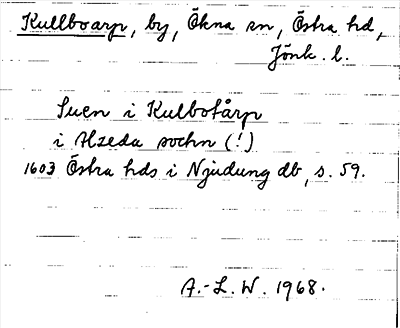 Kullboarp, by, Ökna sn, Östra hd,
Jönk. l.
Suen i Kulbotårp
i Alzeda sochn (!)
1603 Östra hds i Njudung db, s. 59.
A.-L. W. 1968.